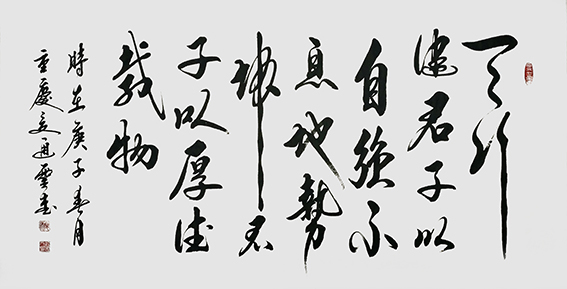 天行
健君子以
自強不
息地勢
坤君
子以厚德
載物
時在庚子春月
重慶通雲書